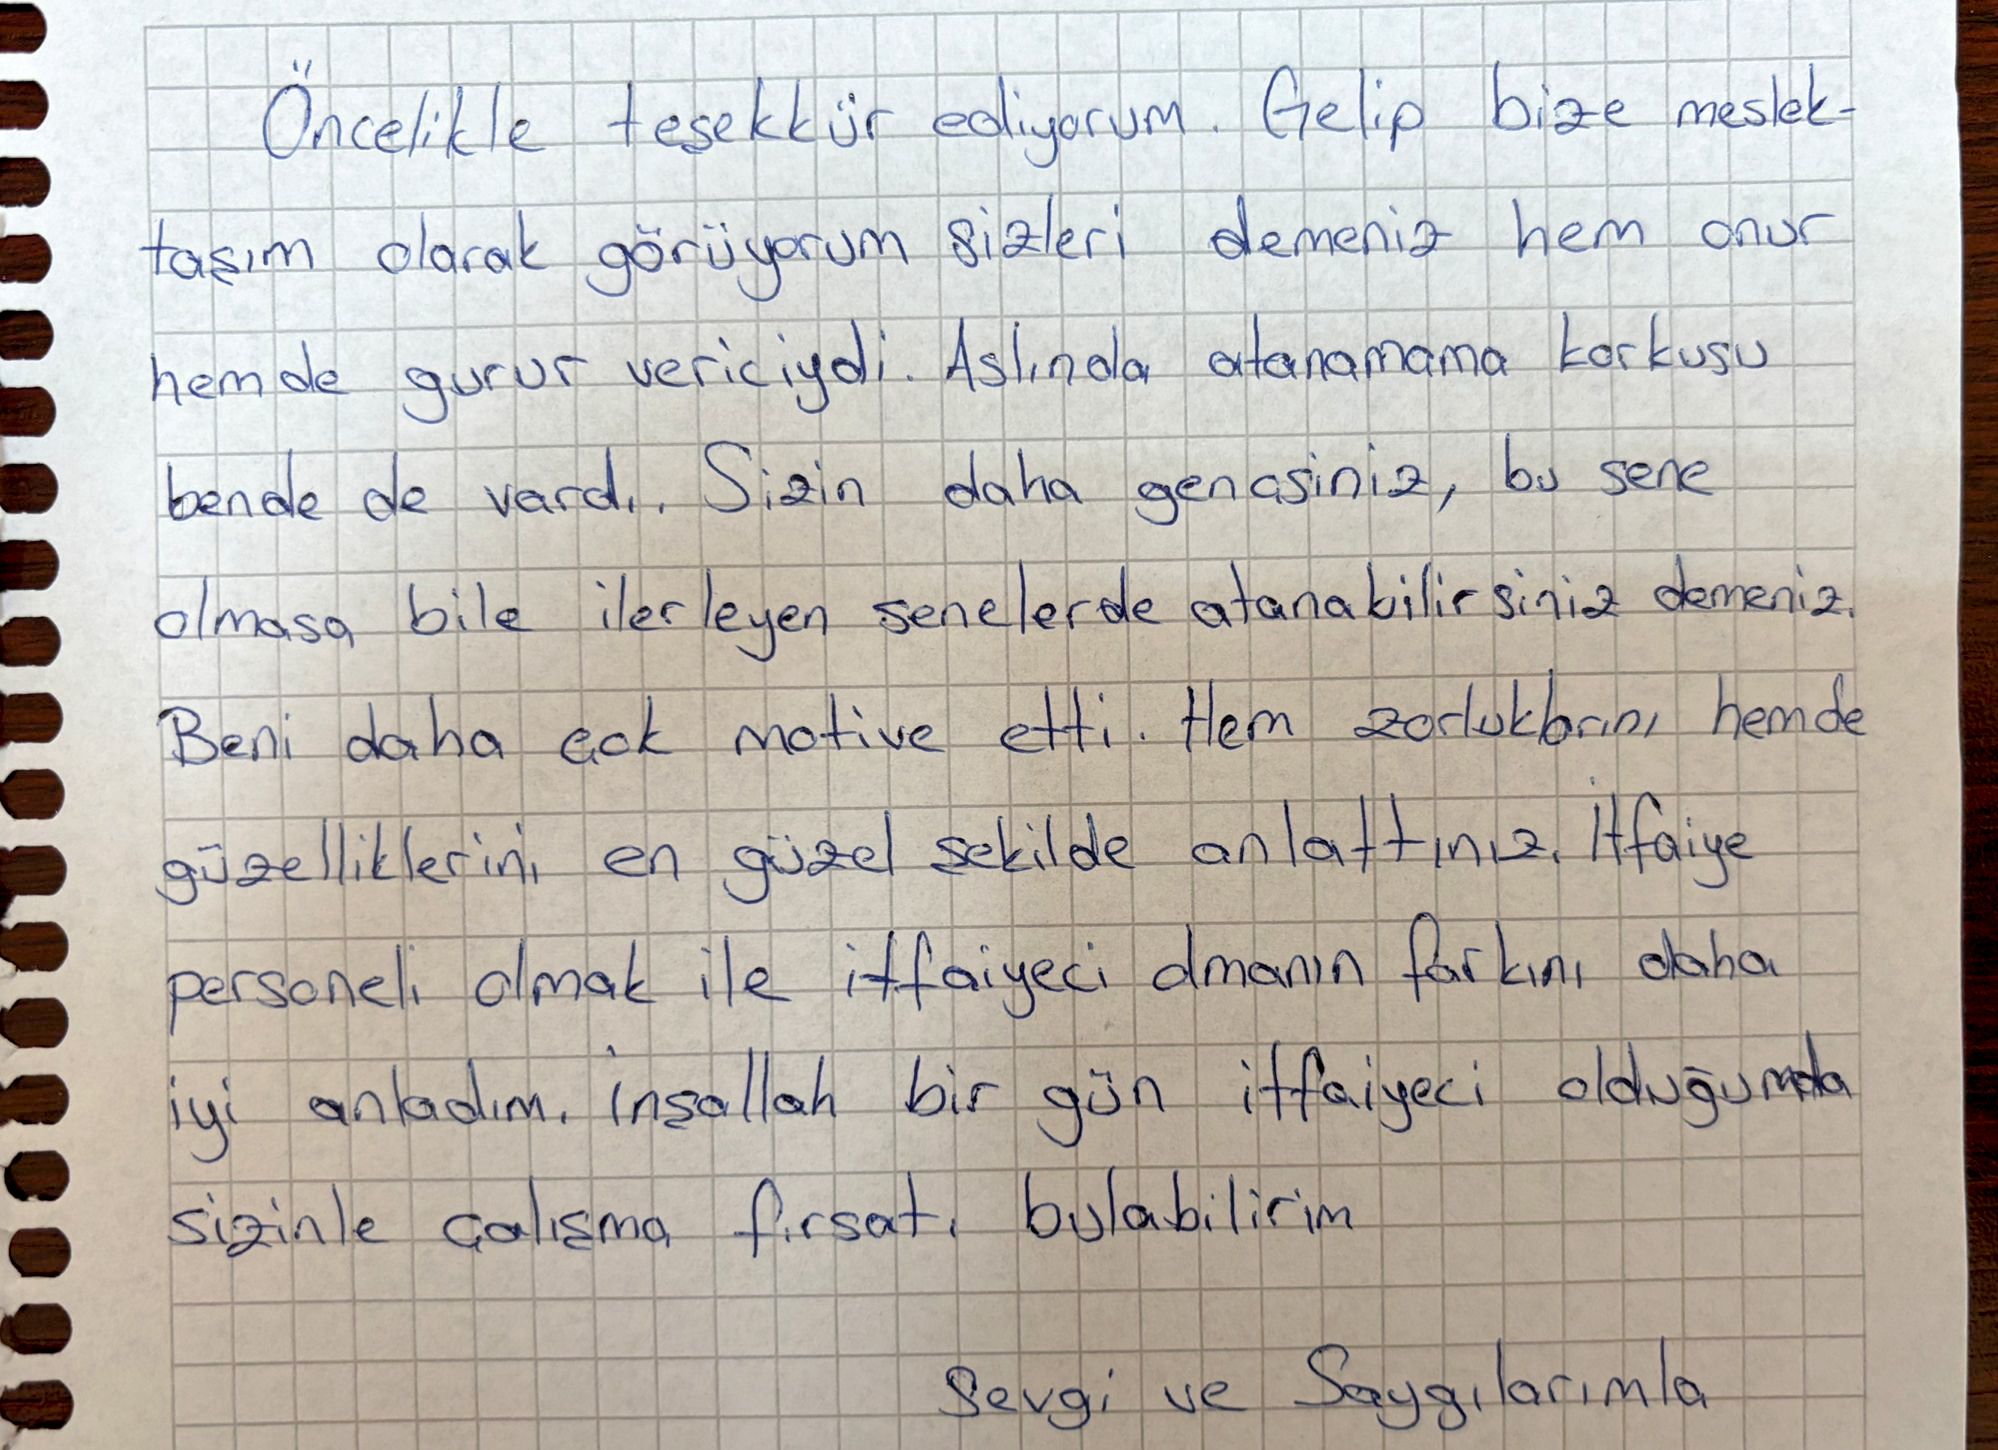 Öncelikle teşekkür ediyorum. Gelip bize meslek-
taşım olarak görüyorum sizleri demeniz hem onur
hemde gurur vericiydi. Aslında atanamama korkusu
bende de vardı. Sizin daha gençsiniz, bu sene
olmasa bile ilerleyen senelerde atanabilirsiniz demeniz.
Beni daha çok motive etti. Hem zorluklarını hemde
güzelliklerini en güzel şekilde anlattınız. İtfaiye
personeli olmak ile itfaiyeci olmanın farkını daha
iyi anladım. İnşallah bir gün itfaiyeci olduğumda
sizinle çalışma fırsatı bulabilirim
Sevgi ve Saygılarımla